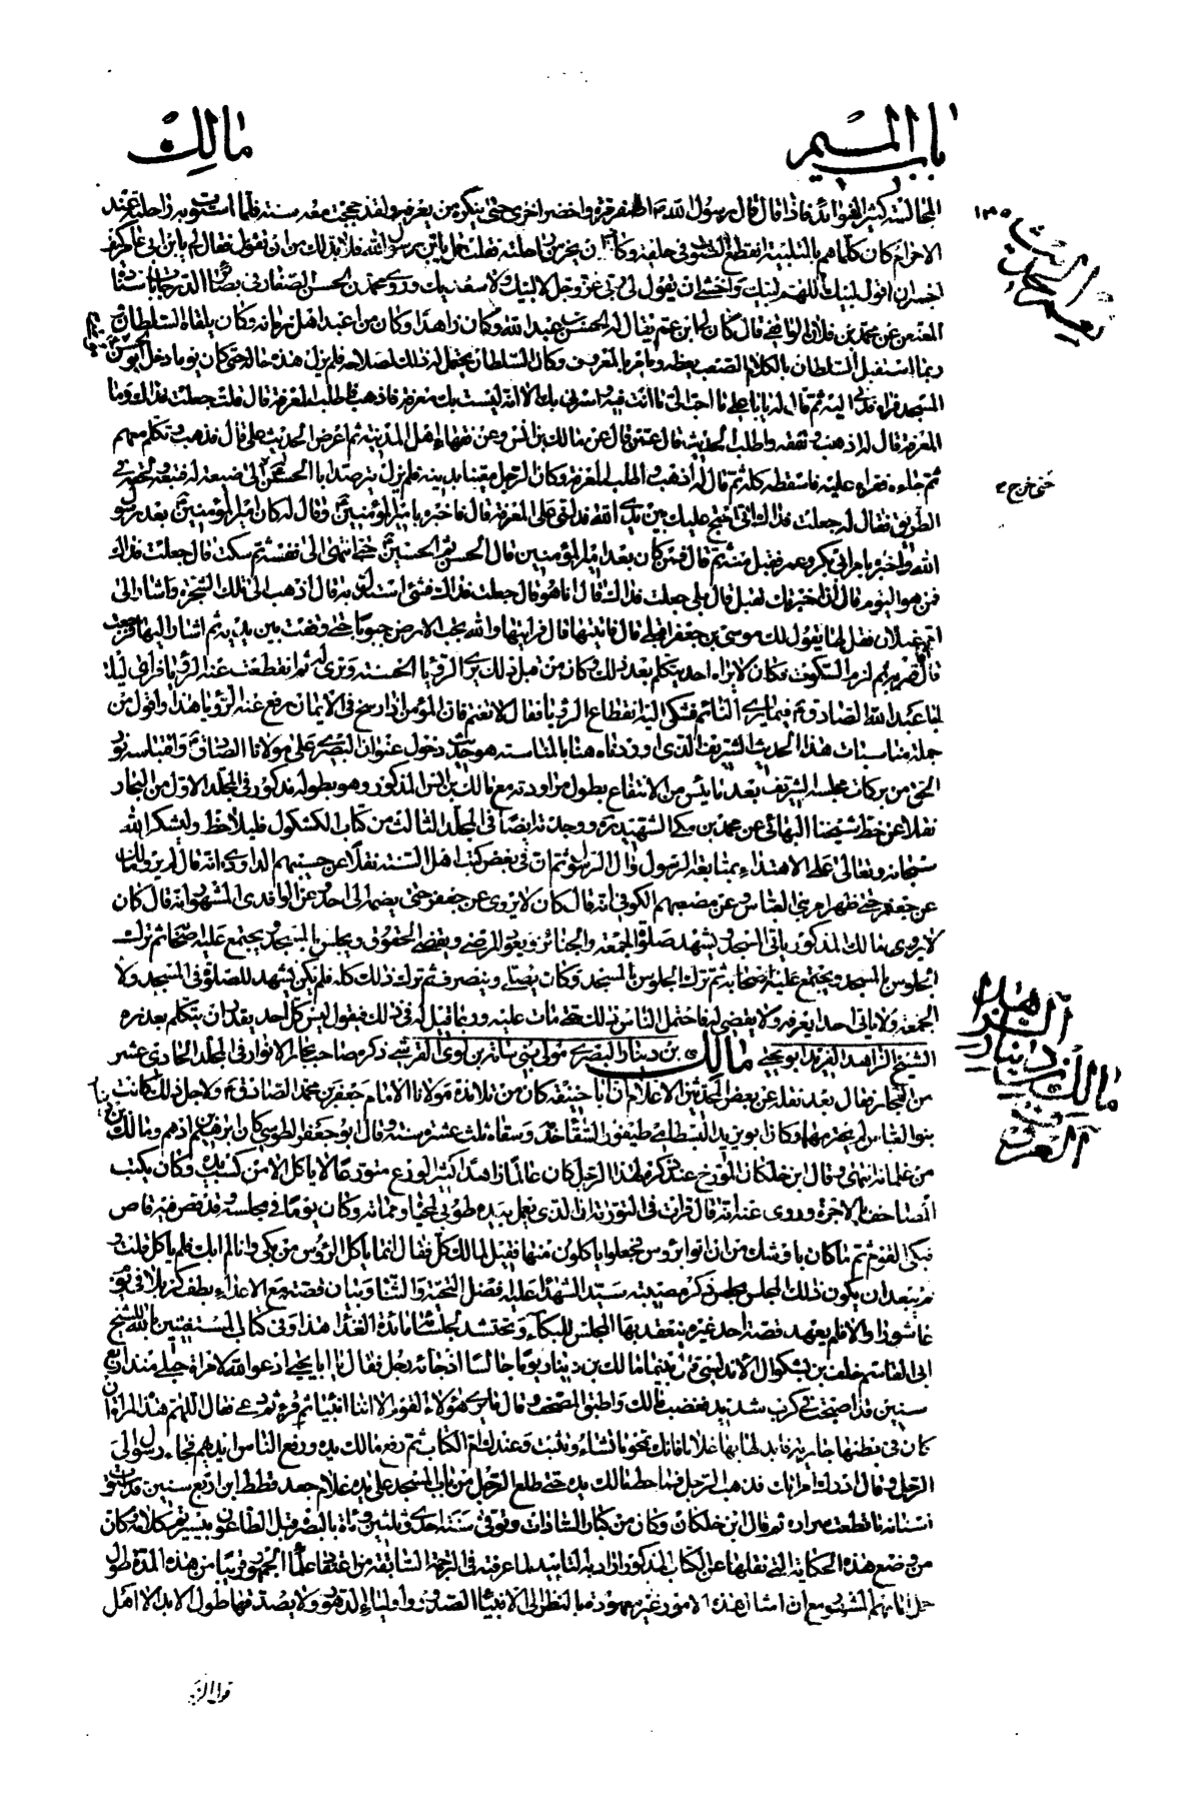 باب الميم
مالك
المجالسة كثير الفوائد فاذا قال قال رسول الله اصفر مرة واخضر اخرى حتى ينكره من يعرفه ولقد حججت معه سنة فلما استوت به راحلته عند
الاحرام كان كلما هم بالتلبية انقطع الصوت في حلقه وكاد ان يخر من راحلته فقلت قل يابن رسول الله فلا بد لك من ان تقول فقال يابن ابي عامر كيف
اجسر ان اقول لبيك اللهم لبيك واخشى ان يقول لي ربي عز وجل لا لبيك ولا سعديك وروى محمد بن الحسن الصفار في بصائر الدرجات باسناده
عن محمد بن فلان الواقفي قال كان لي ابن عم يقال له الحسن بن عبد الله وكان زاهدا وكان من اعبد اهل زمانه وكان يلقاه السلطان
ربما استقبل السلطان بالكلام الصعب يعظه ويامر بالمعروف وكان السلطان يحتمل له ذلك لصلاحه فلم يزل هذه حاله حتى كان يوما دخل ابو الحسن
المسجد فراه فدنى اليه ثم قال له يا ابا علي ما احب الي ما انت فيه واسرني بك الا انه ليست بك معرفة فاذهب فاطلب المعرفة قال قلت جعلت فداك وما
المعرفة قال له اذهب وتفقه واطلب الحديث قال عمن قال عن مالك بن انس وعن فقهاء اهل المدينة ثم اعرض الحديث علي قال فذهب وتكلم معهم
ثم جاءه فقراه عليه فاسقطه كله ثم قال له اذهب واطلب المعرفة وكان الرجل معنيا بدينه فلم يزل يترصد ابا الحسن حتى خرج الى ضيعة له فتبعه ولحقه في
الطريق فقال له جعلت فداك اني احتج عليك بين يدي الله فدلني على المعرفة قال فاخبره بامير المؤمنين وقال له كان امير المؤمنين بعد رسول
الله واخبره بامر ابي بكر وعمر فقبل منه ثم قال فمن كان بعد امير المؤمنين قال الحسن ثم الحسين حتى انتهى الى نفسه ثم سكت قال جعلت فداك
فمن هو اليوم قال ان اخبرتك تقبل قال بلى جعلت فداك قال انا هو قال جعلت فداك فشيء استدل به قال اذهب الى تلك الشجرة واشار الى
ام غيلان فقل لها يقول لك موسى بن جعفر اقبلي قال فاتيتها قال فرايتها والله تجب الارض جبوبا حتى وقفت بين يديه ثم اشار اليها فرجعت
قال فاقر به ثم لزم السكوت فكان لا يراه احد يتكلم بعد ذلك وكان من قبل ذلك يرى الرؤيا الحسنة وترى له ثم انقطعت عنه الرؤيا فراى ليلة
ابا عبد الله الصادق فيما يرى النائم فشكى اليه انقطاع الرؤيا فقال لا تغتم فان المؤمن اذا رسخ في الايمان رفع عنه الرؤيا هذا واقول من
جملة مناسبات هذا الحديث الشريف الذي اوردناه هنا بالمناسبة هو حديث دخول عنوان البصري على مولانا الصادق واقتباسه نور
الحق من بركات مجلسه الشريف بعد ما يئس من الانتفاع بطول مراودته مع مالك بن انس المذكور وهو بطوله مذكور في المجلد الاول من البحار
نقلا عن خط شيخنا البهائي عن محمد بن مكي الشهيد ره ووجدته ايضا في المجلد الثالث من كتاب الكشكول فليلاحظ وليشكر الله
سبحانه وتعالى على الاهتداء بمتابعة الرسول وال الرسول ثم ان في بعض كتب اهل السنة نقلا عن حسيبهم الداودي انه قال لم يرو مالك
عن جعفر حتى ظهر امر بني العباس وعن مصعبهم الكوفي انه قال كان لا يروى عن جعفر حتى يضمه الى احد وعن الواقدي المشهور انه قال كان
لا يروي مالك المذكور ياتي المسجد ويشهد صلوة الجمعة والجنائز ويعود المرضى ويقضي الحقوق ويجلس بالمسجد ويجتمع عليه اصحابه ثم ترك
الجلوس بالمسجد ويجتمع عليه اصحابه ثم ترك الجلوس بالمسجد وكان يصلي وينصرف ثم ترك ذلك كله فلم يكن يشهد للصلوة في المسجد ولا
الجمعة ولا ياتي احدا يعزيه ولا يقضي له فاحتمل الناس ذلك حتى مات عليه وربما قيل له في ذلك فيقول ليس كل احد يقدر ان يتكلم بعذره
الشيخ الزاهد الفريد ابو يحيى مالك بن دينار البصري مولى بني سامة بن لوى القرشي ذكره صاحب بحار الانوار في المجلد الحادي عشر
من البحار فقال بعد نقله عن بعض المحدثين الاعلام ان ابا حنيفة كان من تلامذة مولانا الامام جعفر بن محمد الصادق ولاجل ذلك كانت
بنو العباس لم يحترمهما وكان ابو يزيد البسطامي طيفور السقا خدمه وسقاه ثلث عشرة سنة وقال ابو جعفر الطوسي كان ابراهيم بن ادهم ومالك بن دينار
من غلمانه انتهى وقال ابن خلكان المؤرخ عند ذكره لهذا الرجل كان عالما زاهدا كثير الورع متورعا لا ياكل الا من كسبه وكان يكتب
المصاحف بالاجرة وروى عنه انه قال قرات في التوراة ان الذي يعمل بيده طوبى لمحياه ومماته وكان يوما في مجلسه وقد قص فيه قاص
فبكى القوم ثم ما كان باوشك من ان اتوا برؤس فجعلوا ياكلون منها فقيل لمالك كل فقال انما ياكل الرؤس من بكى وانا لم ابك فلم ياكل قلت
ان يكون ذلك المجلس مجلس ذكر مصيبة سيد الشهداء عليه افضل التحية والثناء وبيان قصته مع الاعداء بطف كربلا في يوم
عاشورا والا فلم يعهد قصة احد غيره ينعقد بها المجلس للبكاء ويحتشد لجلسائها مائدة الغذاء هذا وفي كتاب المستغيثين بالله للشيخ
ابي القاسم خلف بن بشكوال الاندلسي بينما مالك بن دينار يوما جالسا اذ جائه رجل فقال يا ابا يحيى ادعو الله لامراة حبلى منذ اربع
سنين قد اصبحت في كرب شديد فغضب مالك واطبق المصحف وقال ما يرى هؤلاء القوم الا اننا انبياء ثم قرء ثم دعى فقال اللهم هذه المراة ان
كان في بطنها جارية فابدلها بها غلاما فانك تمحو ما تشاء وتثبت وعندك ام الكتاب ثم رفع مالك يده ورفع الناس ايديهم فجاء رسول الى
الرجل وقال ادرك امراتك فذهب الرجل فما حط مالك يده حتى طلع الرجل من باب المسجد على يده غلام جعد قطط ابن اربع سنين قد استوت
اسنانه ما قطعت سراره ثم قال ابن خلكان وكان من كبار السادات وتوفي سنة احدى وثلثين ومأة بالبصرة قبل الطاعون بيسير كلامه كان
من وضع هذه الحكاية التي نقلها عن الكتاب المذكور اراد بها التاييد لما عرفته في الترجمة السابقة من اعتقاد علماء الجمهور قريبا من هذه المدة طول
حمل امامهم المشهور مع ان امثال هذه الامور غير معهودة بالنظر الى الانبياء الصدور واولياء الدهور ولا يصدقها طول الابد الا اهل
قول الزور
١٣٥
حتى خرج
الشيخ الزاهد مالك بن دينار